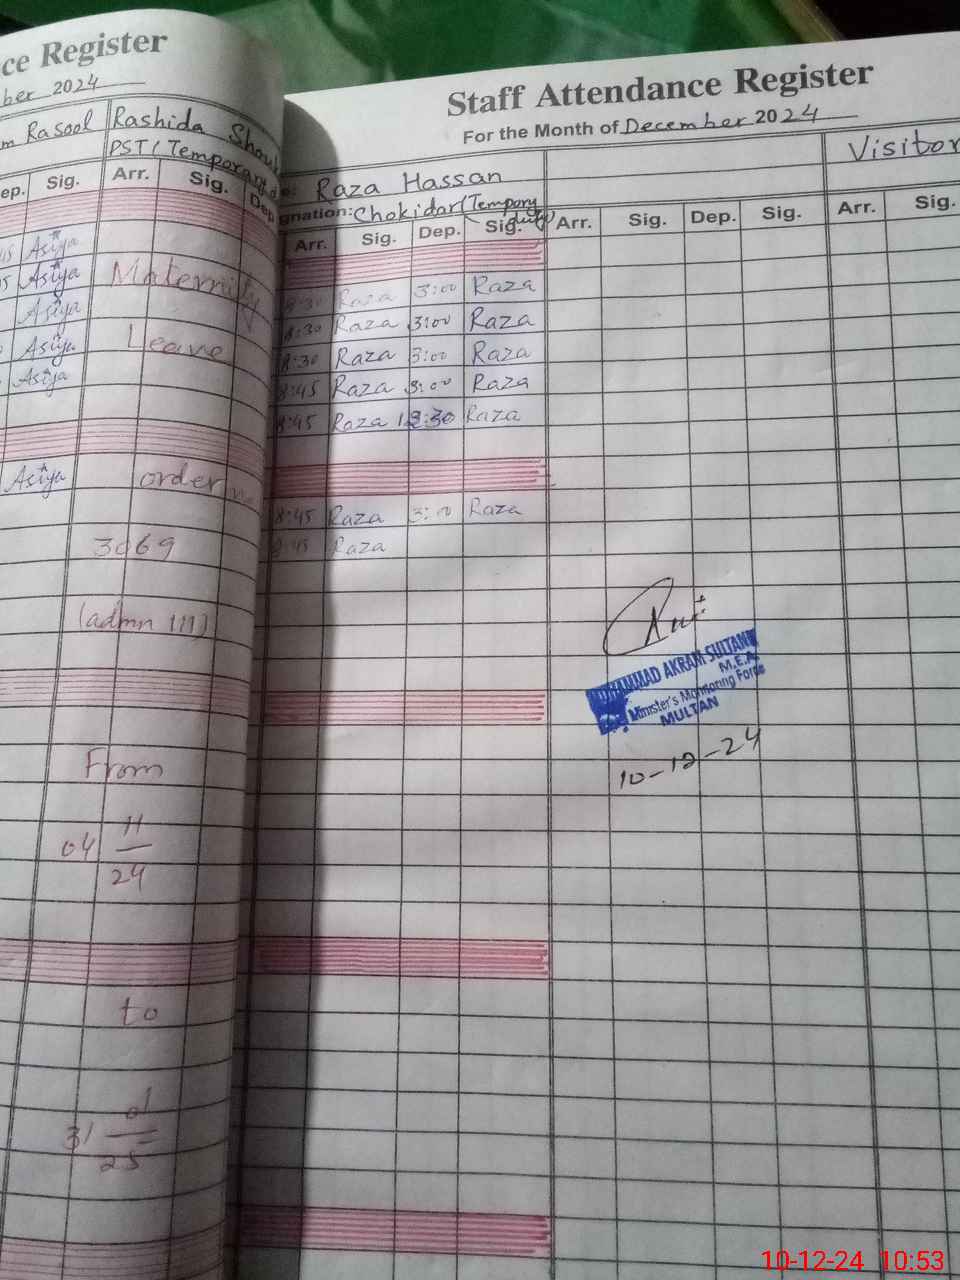 ce Register
ber 2024
m Rasool
Rashida
PST (Temporary
ep. Sig. Arr. Sig. Dep
45 Asiya
45 Asiya
Asiya
Asiya
Asiya
Asiya
Maternity
Leave
order
3069
(admn III)
From
04 11
24
to
31 01
25
Staff Attendance Register
For the Month of December 2024
Raza Hassan
Visitor
gnation: Chokidar (Tempory
duty)
Arr. Sig. Dep. Sig. Arr. Sig. Dep. Sig. Arr. Sig.
8:30 Raza 3:00 Raza
8:30 Raza 3:00 Raza
8:30 Raza 3:00 Raza
8:45 Raza 3:00 Raza
8:45 Raza 12:30 Raza
8:45 Raza 3:00 Raza
8:45 Raza
MUHAMMAD AKRAM SULTANI
M.E.A
Minister's Monitoring Force
MULTAN
10-12-24
10-12-24 10:53